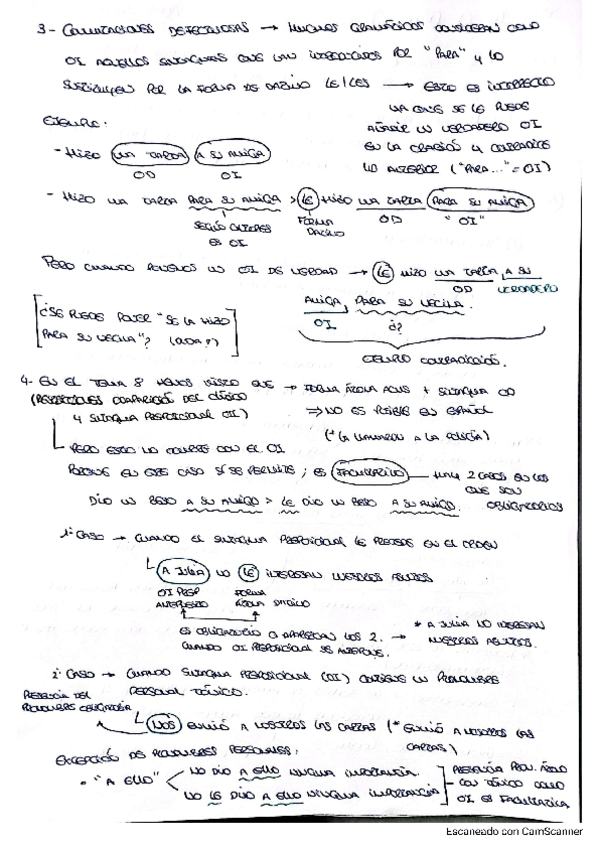 3- CONMUTACIONES DEFECTUOSAS → MUCHOS GRAMÁTICOS CONSIDERAN COMO
OI AQUELLOS SINTAGMAS QUE VAN INTRODUCIDOS POR "PARA" y LO
SUSTITUYEN POR LA FORMA DE DATIVO LE/LES → ESTO ES INCORRECTO
YA QUE SE LE PUEDE
AÑADIR UN VERDADERO OI
EN LA ORACIÓN Y CONTRADICE
LO ANTERIOR ("PARA..." = OI)
EJEMPLO:
- HIZO UNA TARTA A SU AMIGA
OD OI
- HIZO UNA TARTA PARA SU AMIGA > LE HIZO UNA TARTA PARA SU AMIGA
SEGÚN AUTORES ES OI
FORMA DATIVO
OD "OI"
PERO CUANDO PONEMOS UN OI DE VERDAD → LE HIZO UNA TARTA, A SU
OD VERDADERO
AMIGA, PARA SU VECINA.
OI ¿?
[¿SE PUEDE PONER "SE LA HIZO
PARA SU VECINA"? ]
CENTRO CONTRADICCIÓN.
4- EN EL TEMA 8 HEMOS VISTO QUE → FORMA ÁTONA ACUS + SINTAGMA OD
(RESTRICCIONES COMPARICIÓN DEL CLÍTICO
Y SINTAGMA PREPOSICIONAL OI)
⇒ NO ES POSIBLE EN ESPAÑOL
(* LA LLAMARON A LA POLICÍA)
PERO ESTO NO OCURRE CON EL OI
PORQUE EN ESTE CASO SÍ SE PERMITE; ES FACULTATIVO — HAY 2 CASOS EN LOS
QUE SON
OBLIGATORIOS
DIO UN BESO A SU AMIGO > LE DIO UN BESO A SU AMIGO.
1º CASO → CUANDO EL SINTAGMA PREPOSICIONAL LE PRECEDE EN EL ORDEN
A JULIA NO LE INTERESAN NUESTROS ASUNTOS
OI PREP ANTEPUESTO
FORMA ÁTONA DATIVO
ES OBLIGATORIO Q APAREZCAN LOS 2.
CUANDO OI PREPOSICIONAL SE ANTEPONE.
→ * A JULIA NO INTERESAN
NUESTROS ASUNTOS.
2º CASO → CUANDO SINTAGMA PREPOSICIONAL (OI) CONTIENE UN PRONOMBRE
PERSONAL TÓNICO.
PRESENCIA DEL
PRONOMBRE OBLIGATORIA
NOS ENVIÓ A NOSOTROS LAS CARTAS (* ENVIÓ A NOSOTROS LAS
CARTAS)
EXCEPCIÓN DE PRONOMBRES PERSONALES:
"A ELLO"
NO DIO A ELLO NINGUNA IMPORTANCIA.
NO LE DIO A ELLO NINGUNA IMPORTANCIA
PRESENCIA PRON. ÁTONO
CON TÓNICO COMO
OI ES FACULTATIVA
Escaneado con CamScanner